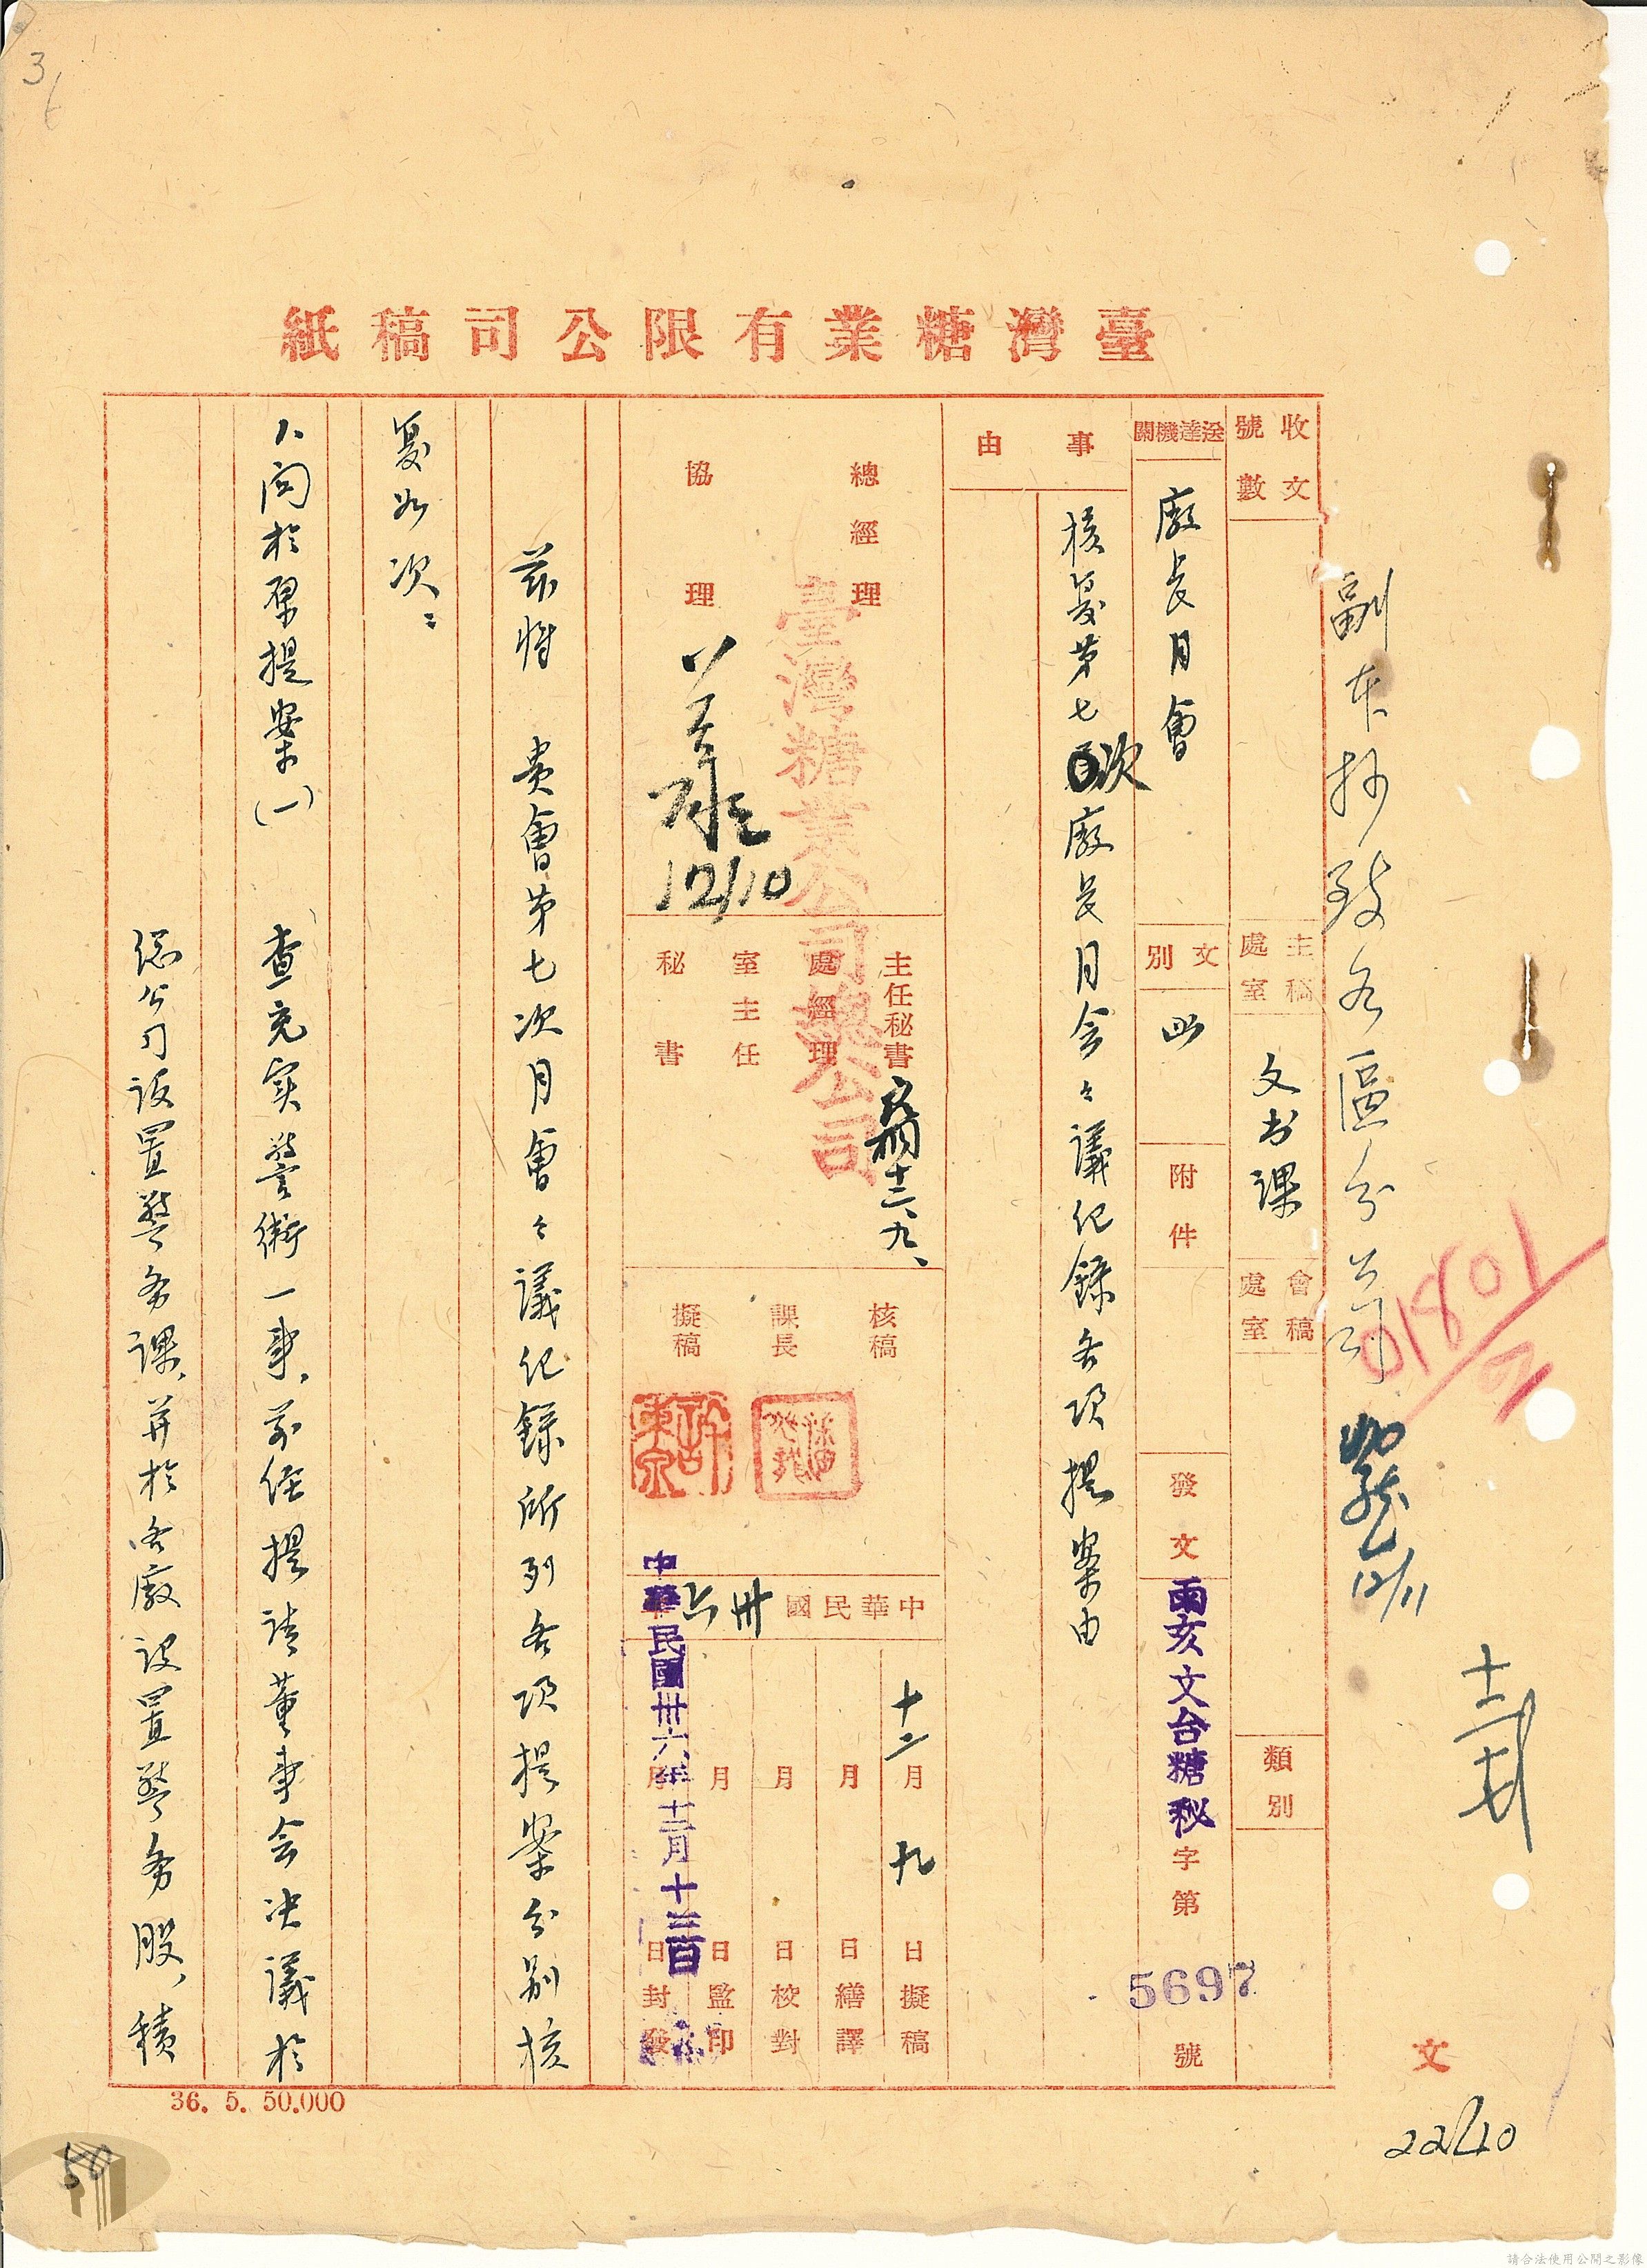 臺灣糖業有限公司稿紙
副本抄致各區分公司
12/11
01801
十二
十七
收文號數
主稿處室
文书课
會稿處室
類別
送達機關
廠長月會
文別
附件
發文
兩亥文台糖秘字第5697號
事由
核复第七次廠長月会々議纪錄各項提案由
總經理
協理
12/10
臺灣糖業公司總公司
主任秘書
十二、九、
處經理
室主任
秘書
核稿
課長
擬稿
中華民國卅六
十二月九日擬稿
月日繕譯
月日校對
月日監印
月日封發
中華民國卅六年十二月十三日
茲將 貴會第七次月會々議纪錄所列各項提案分别核
复如次：
1、関於原提案(一) 查充实警衛一事、前经提請董事会决議於
總公司設置警务課、并於各廠設置警务股、積
36. 5. 50.000
文
3
50
請合法使用公開之影像